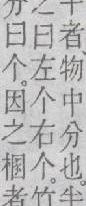 者、物中分也。半
之曰左个右个。竹
分曰个。因之梱者